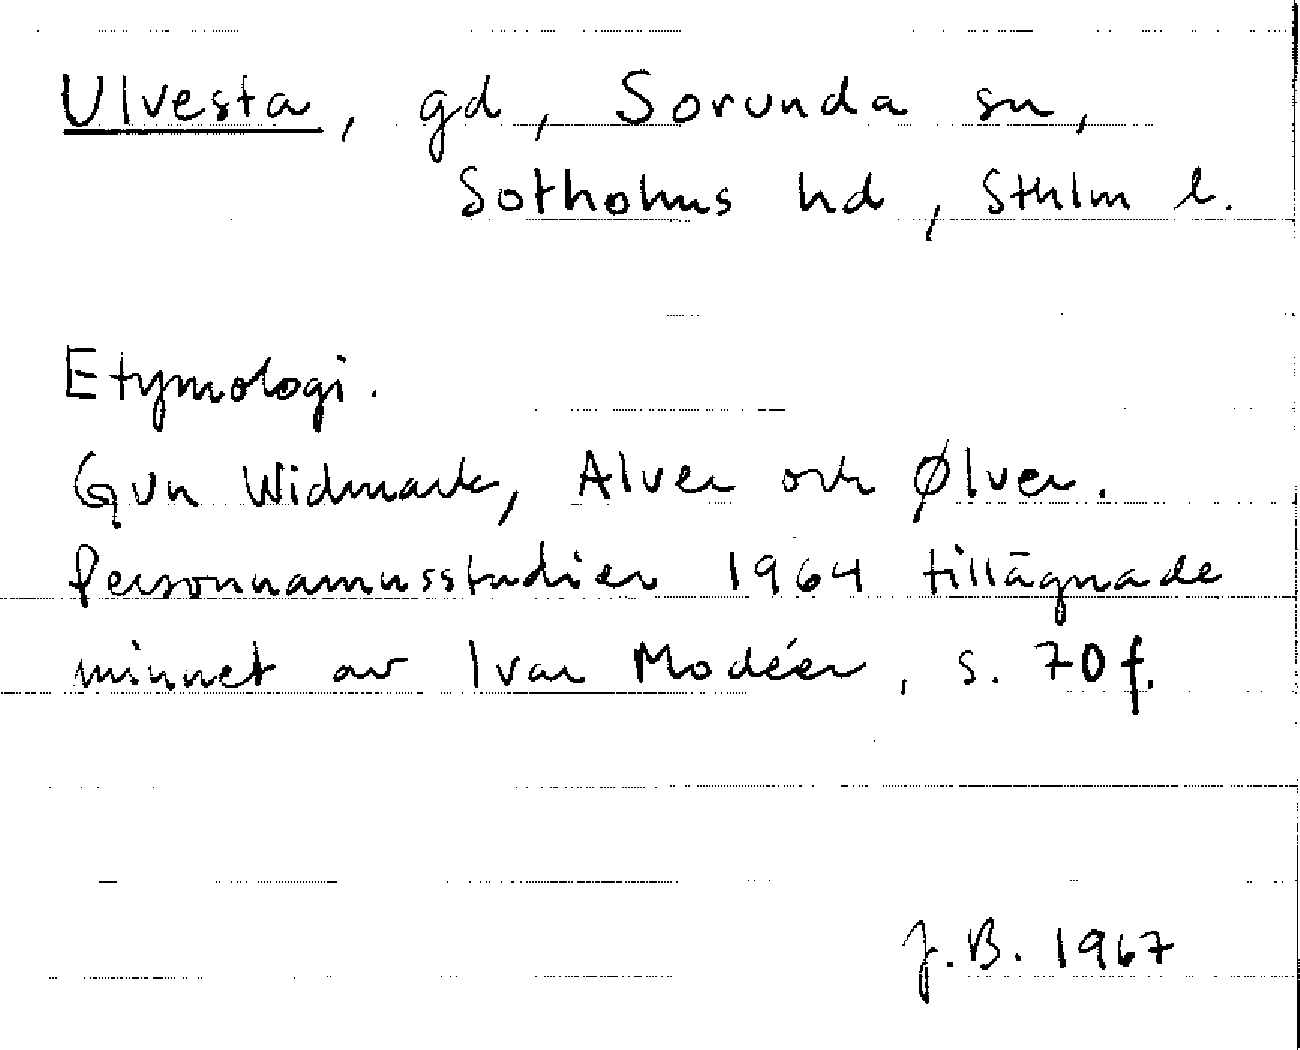 Ulvesta, gd, Sorunda sn,
Sotholms hd, Sthlm l.
Etymologi.
Gun Widmark, Alver och Ølver.
Personnamnsstudier 1964 tillägnade
minnet av Ivar Modéer, s. 70 f.
J.B. 1967